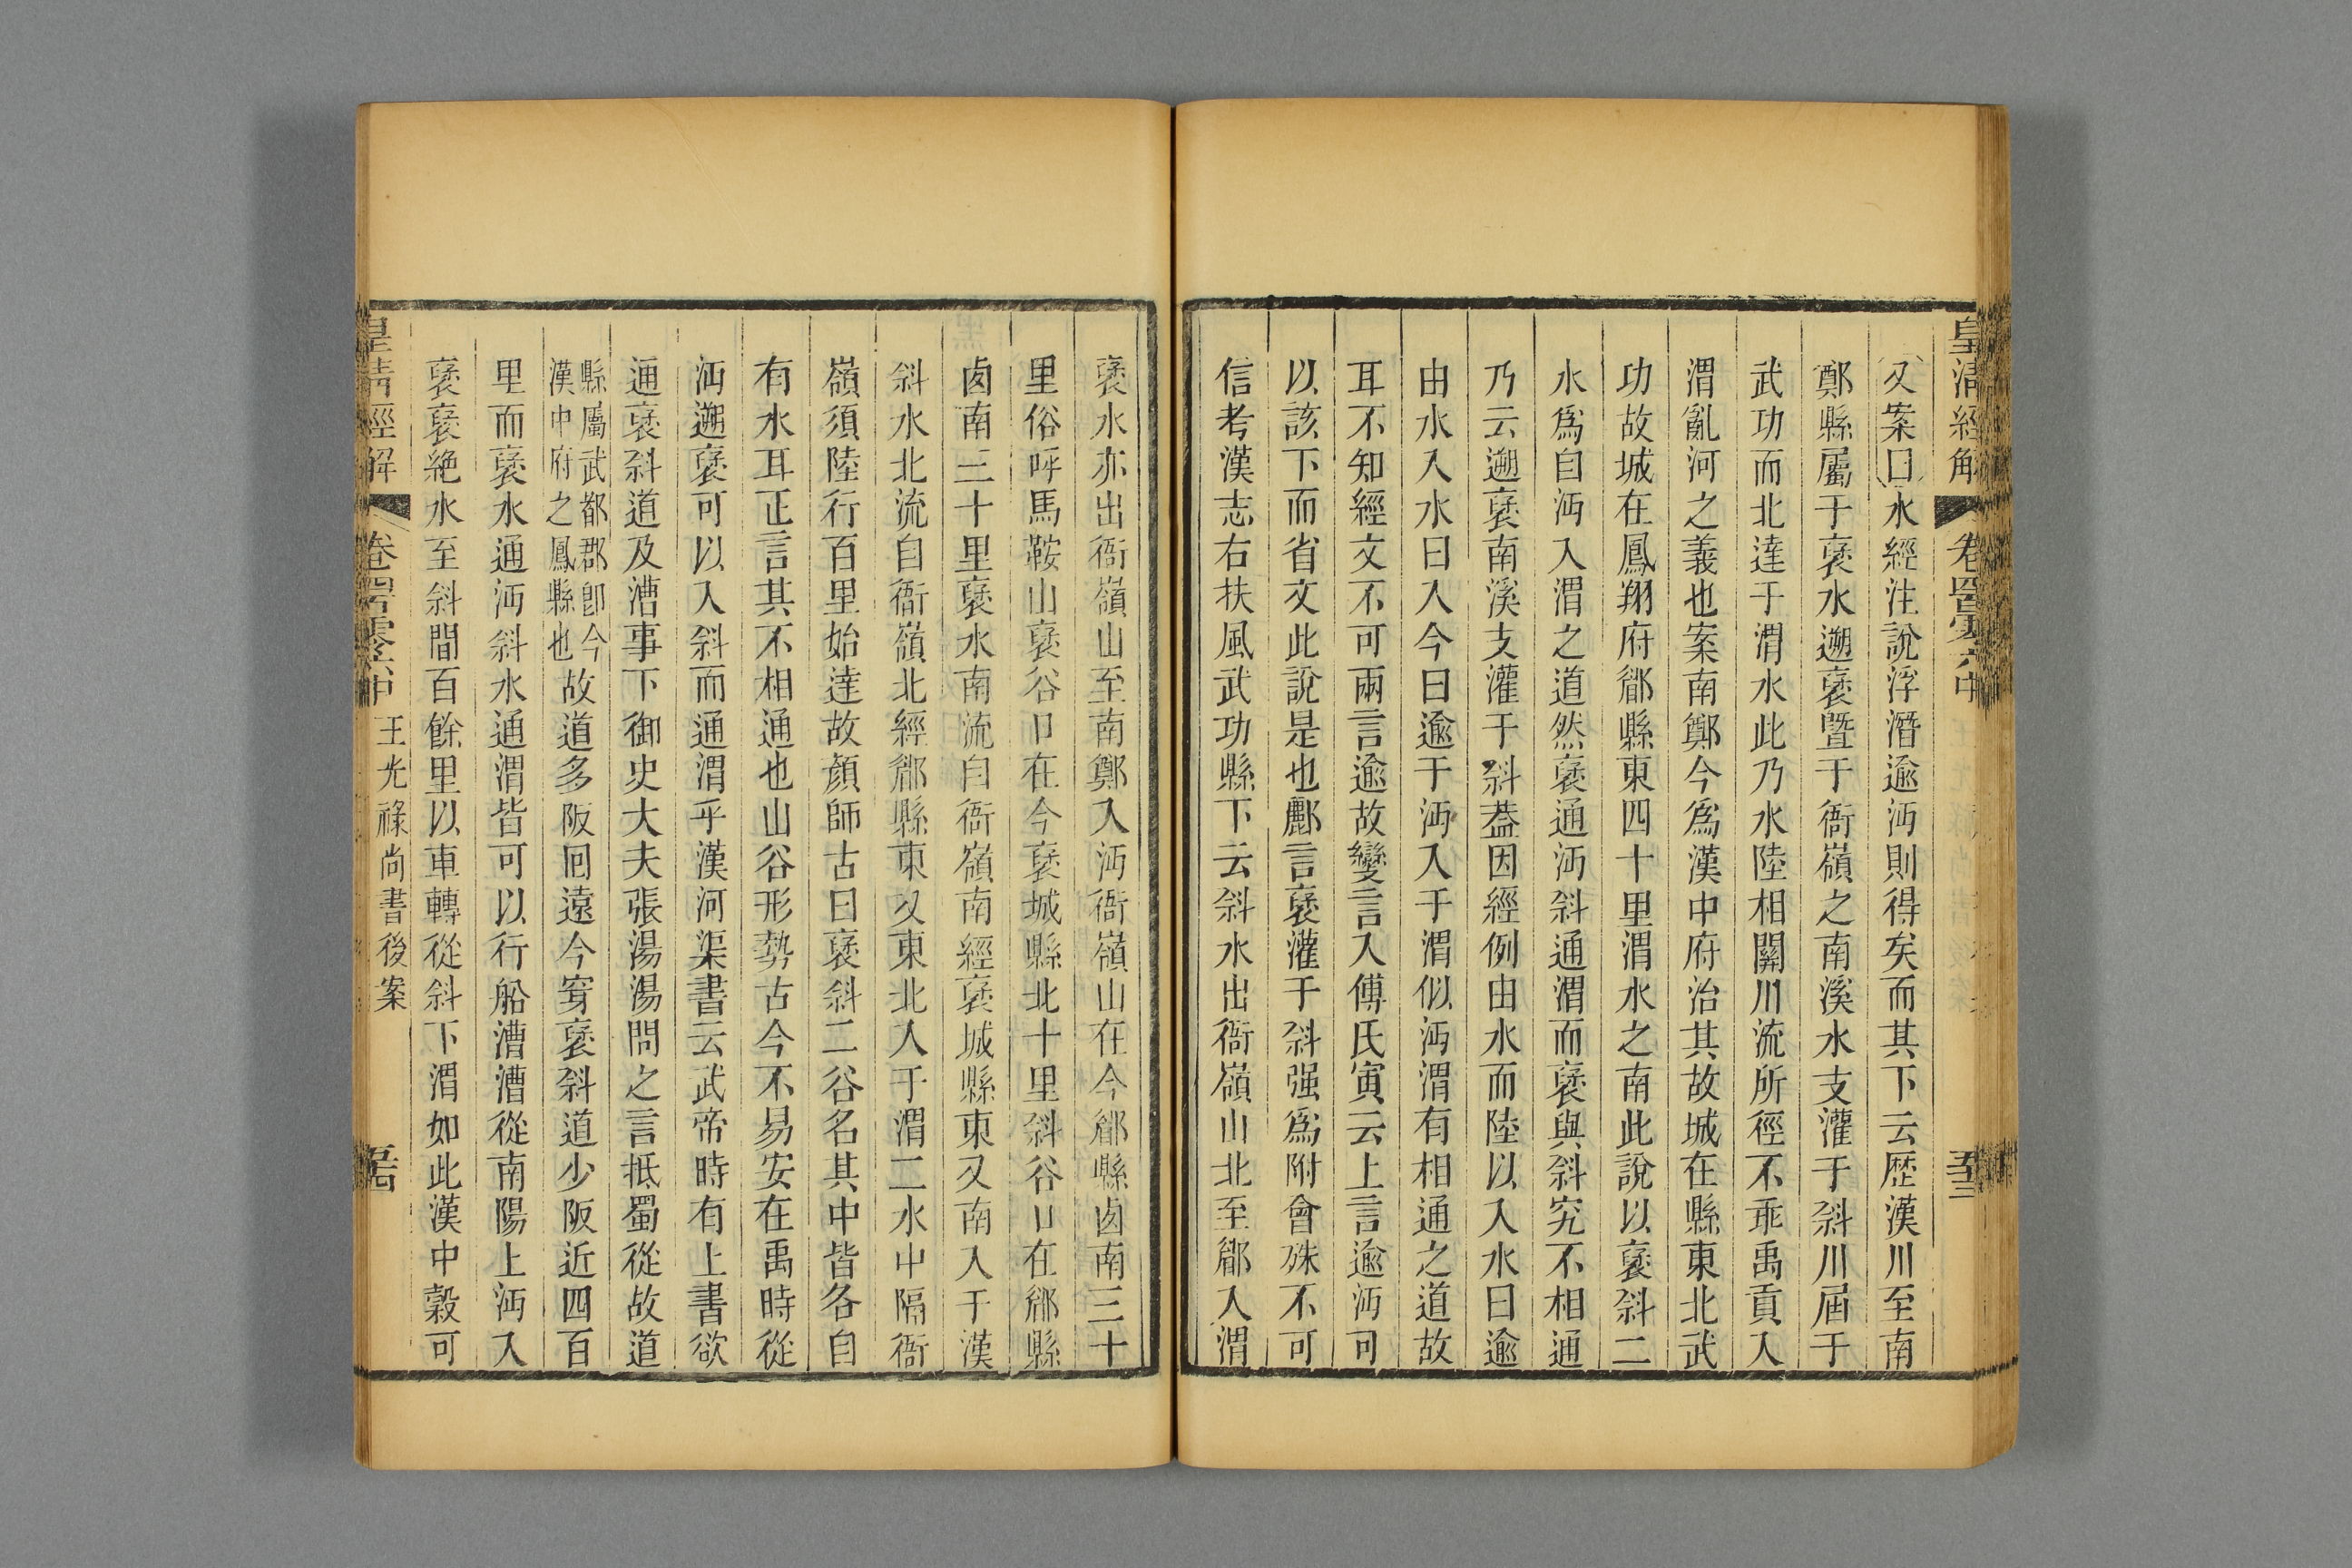 皇清經解
卷四百六中
又案曰水經注說浮潛逾沔則得矣而其下云歷漢川至南
鄭縣屬于褒水遡褒曁于衙嶺之南溪水支灌于斜川屆于
武功而北達于渭水此乃水陸相關川流所徑不乖禹貢入
渭亂河之義也案南鄭今爲漢中府治其故城在縣東北武
功故城在鳳翔府郿縣東四十里渭水之南此說以褒斜二
水爲自沔入渭之道然褒通沔斜通渭而褒與斜究不相通
乃云遡褒南溪支灌于斜葢因經例由水而陸以入水曰逾
由水入水曰入今曰逾于沔入于渭似沔渭有相通之道故
耳不知經文不可兩言逾故變言入傅氏寅云上言逾沔可
以該下而省文此說是也酈言褒灌于斜强爲附會殊不可
信考漢志右扶風武功縣下云斜水出衙嶺山北至郿入渭
褒水亦出衙嶺山至南鄭入沔衙嶺山在今郿縣卤南三十
里俗呼馬鞍山褒谷口在今褒城縣北十里斜谷口在郿縣
卤南三十里褒水南流自衙嶺南經褒城縣東又南入于漢
斜水北流自衙嶺北經郿縣東又東北入于渭二水中隔衙
嶺須陸行百里始達故顏師古曰褒斜二谷名其中皆各自
有水耳正言其不相通也山谷形勢古今不易安在禹時從
沔遡褒可以入斜而通渭乎漢河渠書云武帝時有上書欲
通褒斜道及漕事下御史大夫張湯湯問之言抵蜀從故道
縣屬武都郡卽今
漢中府之鳳縣也
故道多阪囘遠今穿褒斜道少阪近四百
里而褒水通沔斜水通渭皆可以行船漕漕從南陽上沔入
褒褒絶水至斜間百餘里以車轉從斜下渭如此漢中穀可
皇清經解
王光祿尚書後案